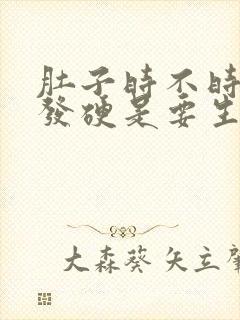 肚子時不時
發硬是要生
大森葵 矢立肇